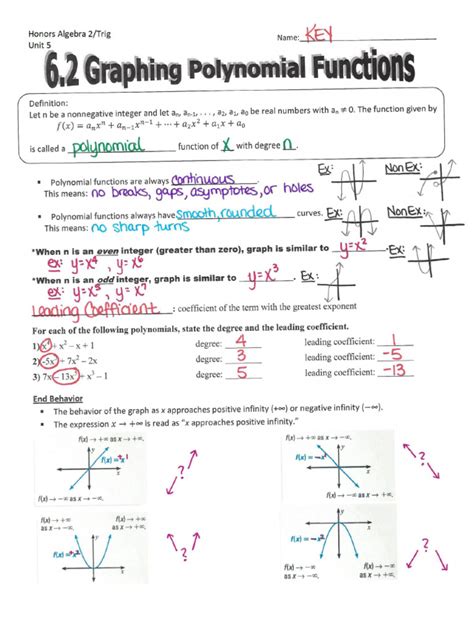 Honors Algebra 2/Trig
Unit 5
Name: KEY
6.2 Graphing Polynomial Functions
Definition:
Let n be a nonnegative integer and let aₙ, aₙ₋₁, . . . , a₂, a₁, a₀ be real numbers with aₙ ≠ 0. The function given by
f(x) = aₙxⁿ + aₙ₋₁xⁿ⁻¹ + ⋯ + a₂x² + a₁x + a₀
is called a polynomial function of x with degree n.
Ex: Non Ex:
• Polynomial functions are always continuous.
This means: no breaks, gaps, asymptotes, or holes
• Polynomial functions always have smooth, rounded curves. Ex: NonEx:
This means: no sharp turns
*When n is an even integer (greater than zero), graph is similar to y=x². Ex:
ex: y=x⁴, y=x⁶
*When n is an odd integer, graph is similar to y=x³. Ex:
ex: y=x⁵, y=x⁷
Leading Coefficient: coefficient of the term with the greatest exponent
For each of the following polynomials, state the degree and the leading coefficient.
1) x⁴ + x² − x + 1 degree: 4 leading coefficient: 1
2) -5x³ + 7x² − 2x degree: 3 leading coefficient: -5
3) 7x − 13x⁵ + x³ − 1 degree: 5 leading coefficient: -13
End Behavior
• The behavior of the graph as x approaches positive infinity (+∞) or negative infinity (−∞).
• The expression x → +∞ is read as “x approaches positive infinity.”
f(x) → +∞ as x → +∞.
y
f(x)=x¹
x
f(x) → −∞ as x → −∞.
?
f(x) → +∞ as x → −∞.
y
f(x)=−x¹
x
f(x) → −∞ as x → +∞.
?
f(x) → +∞ as x → −∞.
f(x) → +∞ as x → +∞.
y
f(x)=+x²
x
?
y
x
f(x)=−x²
f(x) → −∞ as x → −∞.
f(x) → −∞ as x → +∞.
?